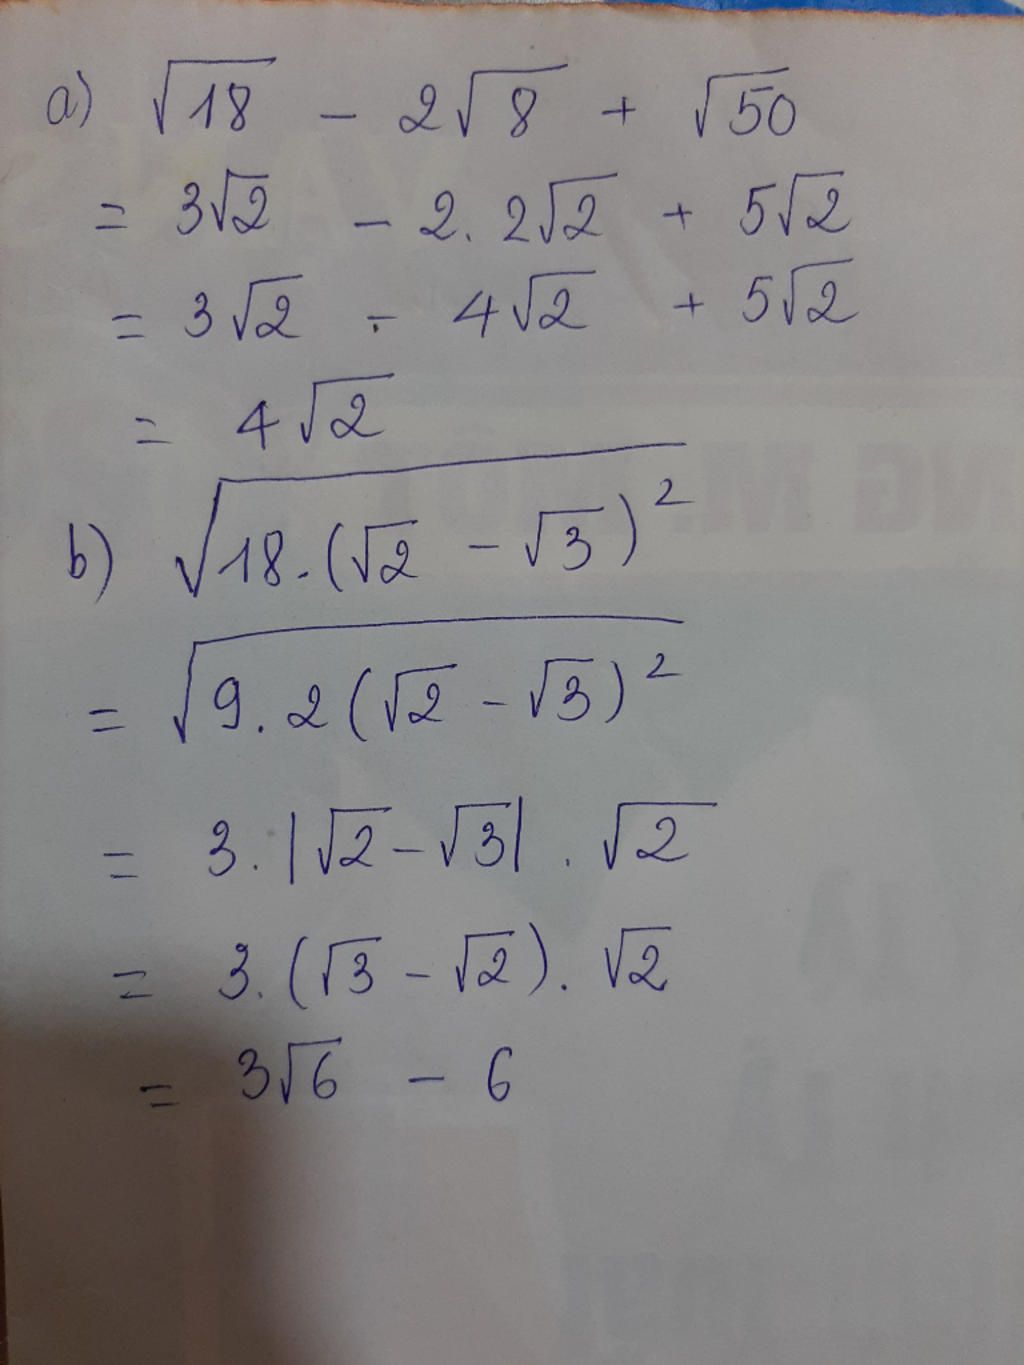 a) √18 - 2√8 + √50
= 3√2 - 2. 2√2 + 5√2
= 3√2 - 4√2 + 5√2
= 4√2
b) √(18.(√2 - √3)²)
= √(9.2(√2 - √3)²)
= 3.|√2 - √3| . √2
= 3.(√3 - √2). √2
= 3√6 - 6